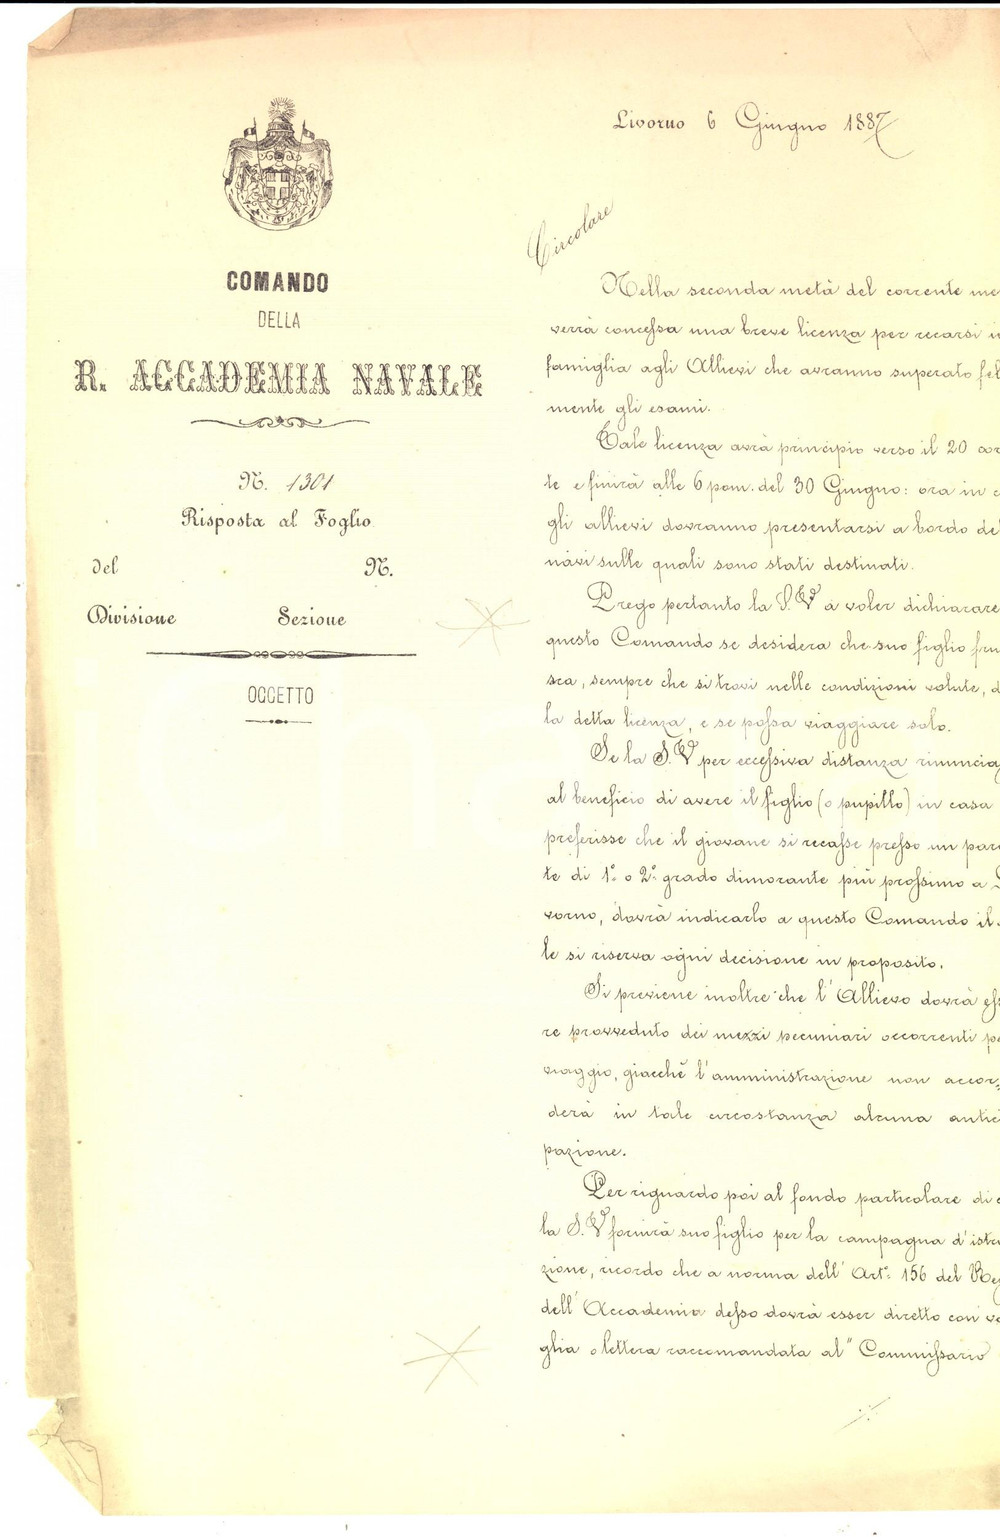 COMANDO
DELLA
R. ACCADEMIA NAVALE
N. 1301
Risposta al Foglio
del N.
Divisione Sezione
OGGETTO
Livorno 6 Giugno 1887
Circolare
Nella seconda metà del corrente me
verrà concessa una breve licenza per recarsi i
famiglia agli Allievi che avranno superato fel
mente gli esami.
Tale licenza avrà principio verso il 20 cor
te e finirà alle 6 pom. del 30 Giugno: ora in c
gli allievi dovranno presentarsi a bordo del
navi sulle quali sono stati destinati.
Prego pertanto la S.V. a voler dichiarare
questo Comando se desidera che suo figlio fru
sca, sempre che si trovi nelle condizioni volute, d
la detta licenza, e se possa viaggiare solo.
Se la S.V. per eccessiva distanza rinuncia
al beneficio di avere il figlio (o pupillo) in casa
preferisse che il giovane si recasse presso un par
te di 1° o 2° grado dimorante più prossimo a L
vorno, dovrà indicarlo a questo Comando il
le si riserva ogni decisione in proposito.
Si previene inoltre che l'Allievo dovrà ess
re provveduto dei mezzi pecuniari occorrenti pe
viaggio, giacchè l'amministrazione non accor-
derà in tale circostanza alcuna antici
pazione.
Per riguardo poi al fondo particolare di c
la S.V. fornirà suo figlio per la campagna d'istru
zione, ricordo che a norma dell' Art.° 156 del Re
dell' Accademia desso dovrà esser diretto con va
glia o lettera raccomandata al "Commissario